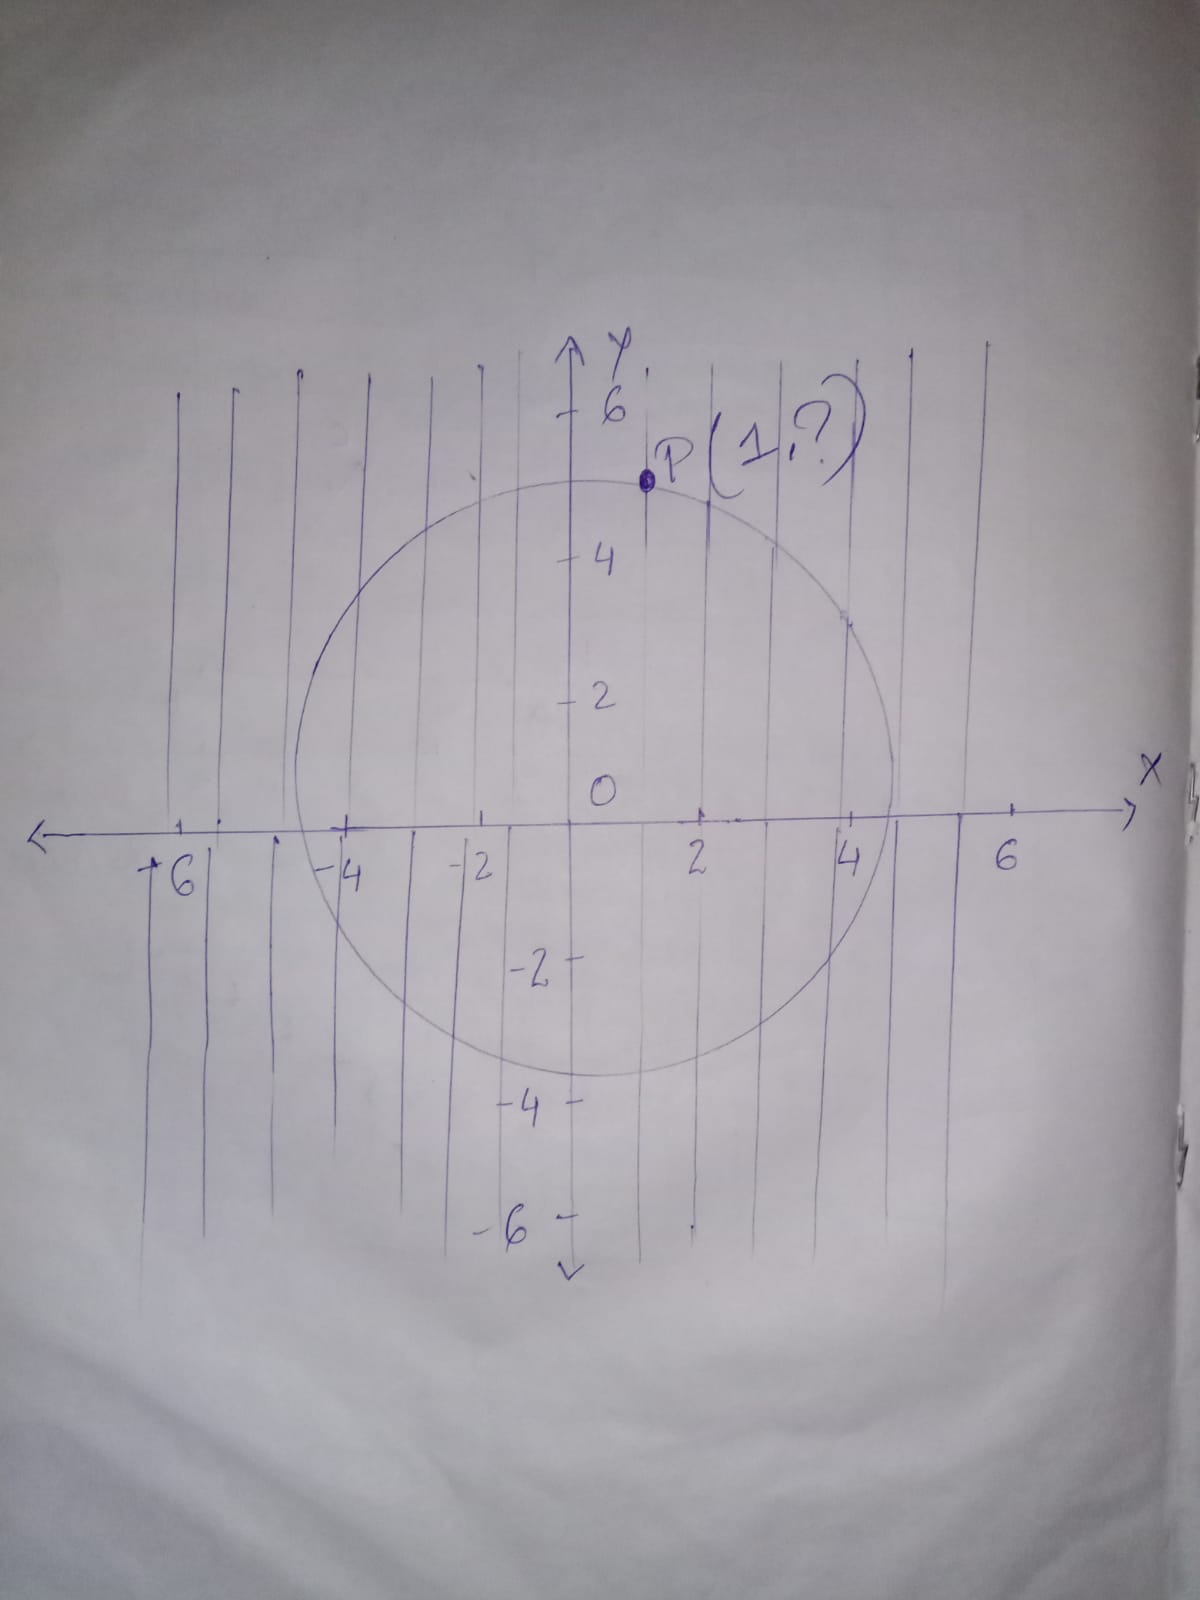 Y
6
P(1,?)
4
2
0
X
-6 -4 -2 2 4 6
-2
-4
-6